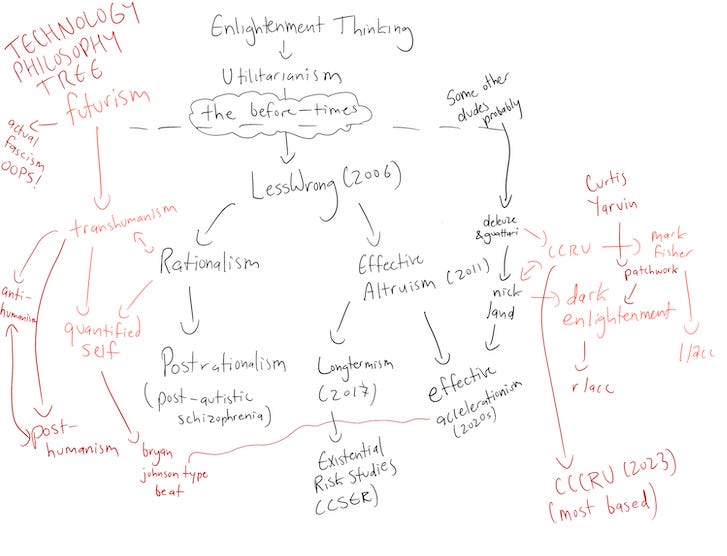 TECHNOLOGY
PHILOSOPHY
TREE
Enlightenment Thinking
Utilitarianism
the before-times
futurism
actual
fascism
OOPS!
Some other
dudes probably
LessWrong (2006)
transhumanism
Rationalism
Effective
Altruism (2011)
deleuze
& guattari
CCRU
Curtis
Yarvin
mark
fisher
patchwork
anti-
humanism
quantified
self
nick
land
dark
enlightenment
l/acc
r/acc
Postrationalism
(post-autistic
schizophrenia)
Longtermism
(2017)
effective
acclerationism
(2020s)
post-
humanism
bryan
johnson type
beat
Existential
Risk Studies
(CSER)
CCCRU (2023)
(most based)